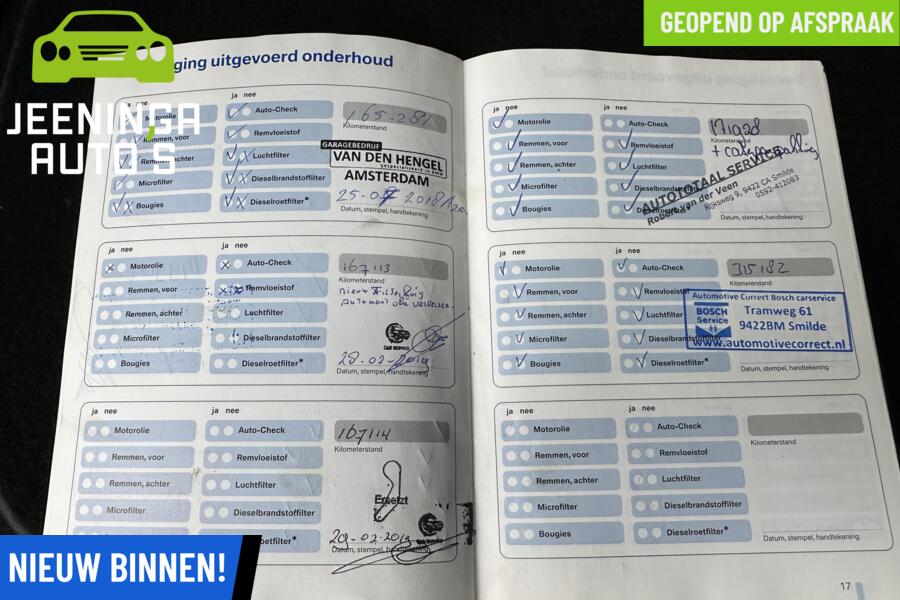 GEOPEND OP AFSPRAAK
JEENINGA
AUTO'S
ging uitgevoerd onderhoud
ja nee
Motorolie
Remmen, voor
Remmen, achter
Microfilter
Bougies
Auto-Check
Remvloeistof
Luchtfilter
Dieselbrandstoffilter
Dieselroetfilter*
165-281
Kilometerstand
GARAGEBEDRIJF
VAN DEN HENGEL
AMSTERDAM
2018
Datum, stempel, handtekening
ja nee
ja nee
Motorolie
Remmen, voor
Remmen, achter
Microfilter
Bougies
Auto-Check
Remvloeistof
Luchtfilter
Dieselbrandstoffilter
Dieselroetfilter*
167113
Kilometerstand
CAR SERVICE
28-02-2019
Datum, stempel, handtekening
ja nee
ja nee
Motorolie
Remmen, voor
Remmen, achter
Microfilter
Auto-Check
Remvloeistof
Luchtfilter
Dieselbrandstoffilter
167114
Kilometerstand
Ersetzt
Datum, stempel, handtekening
ja nee
ja nee
Motorolie
Remmen, voor
Remmen, achter
Microfilter
Bougies
Auto-Check
Remvloeistof
Luchtfilter
Dieselbrandstoffilter
Dieselroetfilter*
Kilometerstand
AUTOTOTAAL SERVICE
Robert van der Veen
Rijksweg 9, 9422 CA Smilde
0592-412083
Datum, stempel, handtekening
ja nee
ja nee
Motorolie
Remmen, voor
Remmen, achter
Microfilter
Bougies
Auto-Check
Remvloeistof
Luchtfilter
Dieselbrandstoffilter
Dieselroetfilter*
315182
Kilometerstand
Automotive Correct Bosch carservice
BOSCH
Service
Tramweg 61
9422BM Smilde
www.automotivecorrect.nl
Datum, stempel, handtekening
ja nee
ja nee
Motorolie
Remmen, voor
Remmen, achter
Microfilter
Bougies
Auto-Check
Remvloeistof
Luchtfilter
Dieselbrandstoffilter
Dieselroetfilter*
Kilometerstand
Datum, stempel, handtekening
17
NIEUW BINNEN!